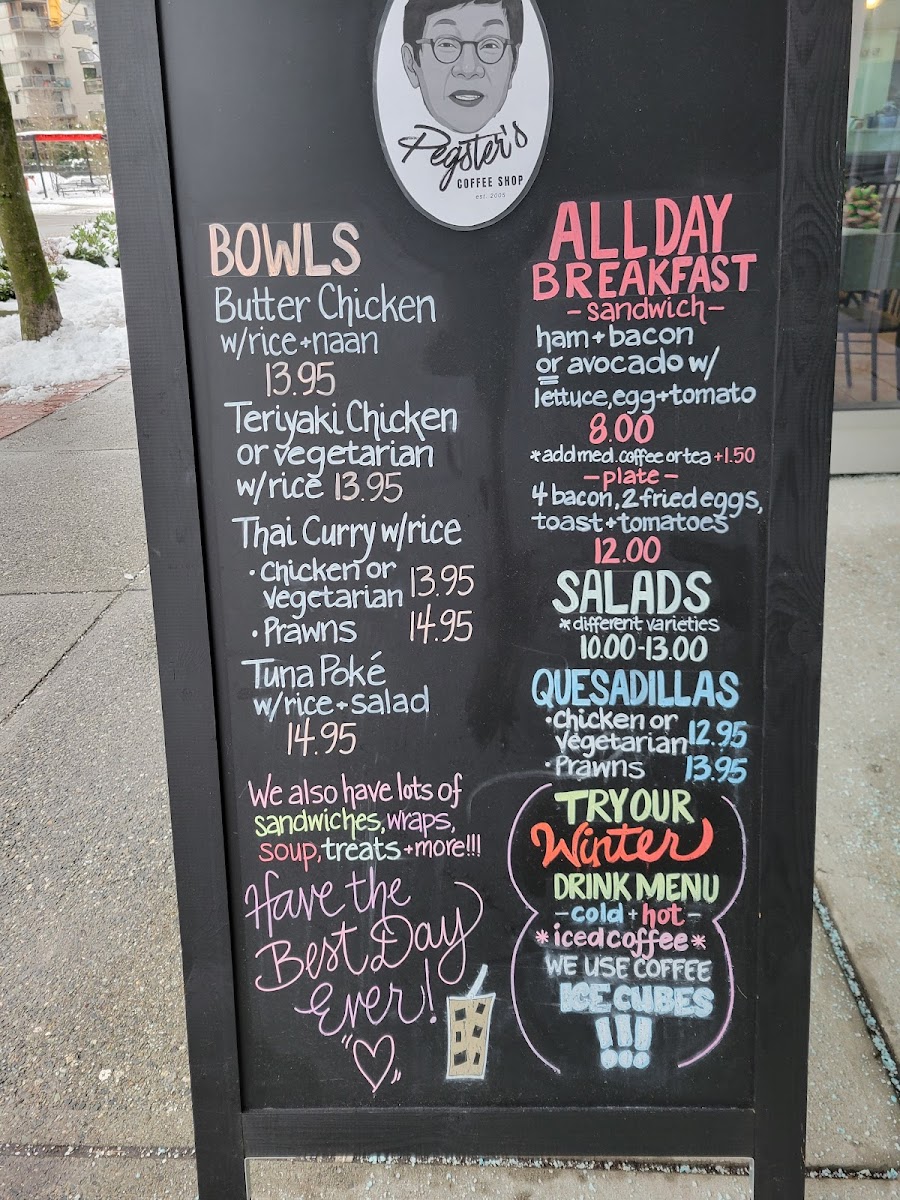 Pegster's
COFFEE SHOP
est. 2005
BOWLS
Butter Chicken
w/rice+naan
13.95
Teriyaki Chicken
or vegetarian
w/rice 13.95
Thai Curry w/rice
• chicken or
vegetarian 13.95
• Prawns 14.95
Tuna Poké
w/rice+salad
14.95
We also have lots of
sandwiches, wraps,
soup, treats +more!!!
Have the
Best Day
Ever!
ALL DAY
BREAKFAST
- sandwich -
ham+bacon
or avocado w/
lettuce, egg+tomato
8.00
*add med. coffee or tea +1.50
- plate -
4 bacon, 2 fried eggs,
toast+tomatoes
12.00
SALADS
*different varieties
10.00-13.00
QUESADILLAS
• chicken or
vegetarian 12.95
• Prawns 13.95
TRY OUR
Winter
DRINK MENU
- cold + hot -
*iced coffee*
WE USE COFFEE
ICE CUBES
!!!